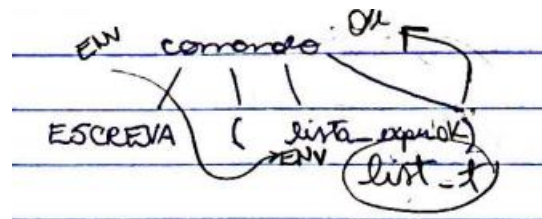 ENV comando OK
ESCREVA ( lista_expr OK )
ENV list_t